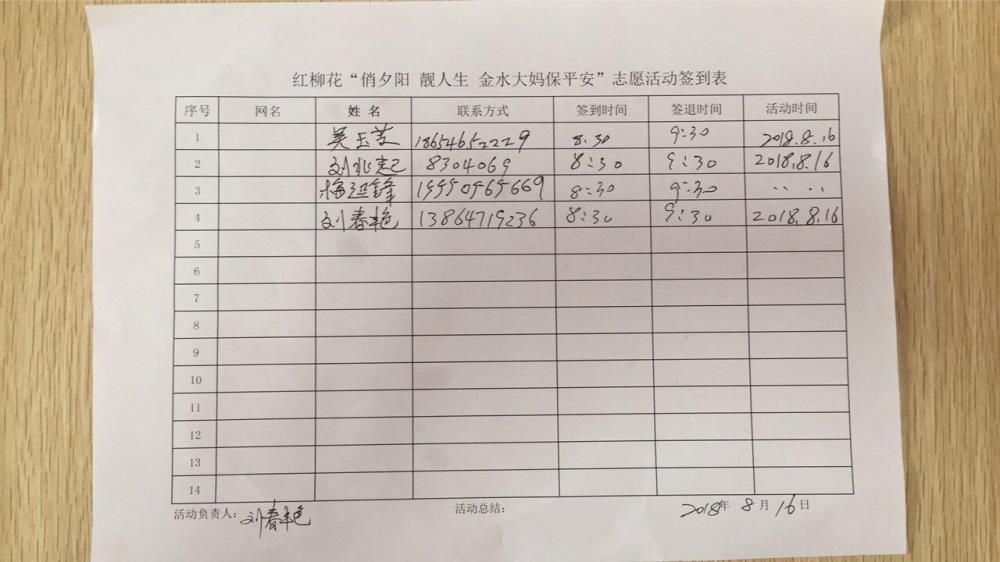 红柳花“俏夕阳 靓人生 金水大妈保平安”志愿活动签到表
序号 网名 姓名 联系方式 签到时间 签退时间 活动时间
1 吴玉芝 18654652229 8:30 9:30 2018.8.16
2 刘兆起 8304069 8:30 9:30 2018.8.16
3 8:30 9:30 〃 〃
4 刘春艳 13864719236 8:30 9:30 2018.8.16
5
6
7
8
9
10
11
12
13
14
活动负责人：刘春艳 活动总结： 2018年 8月 16日